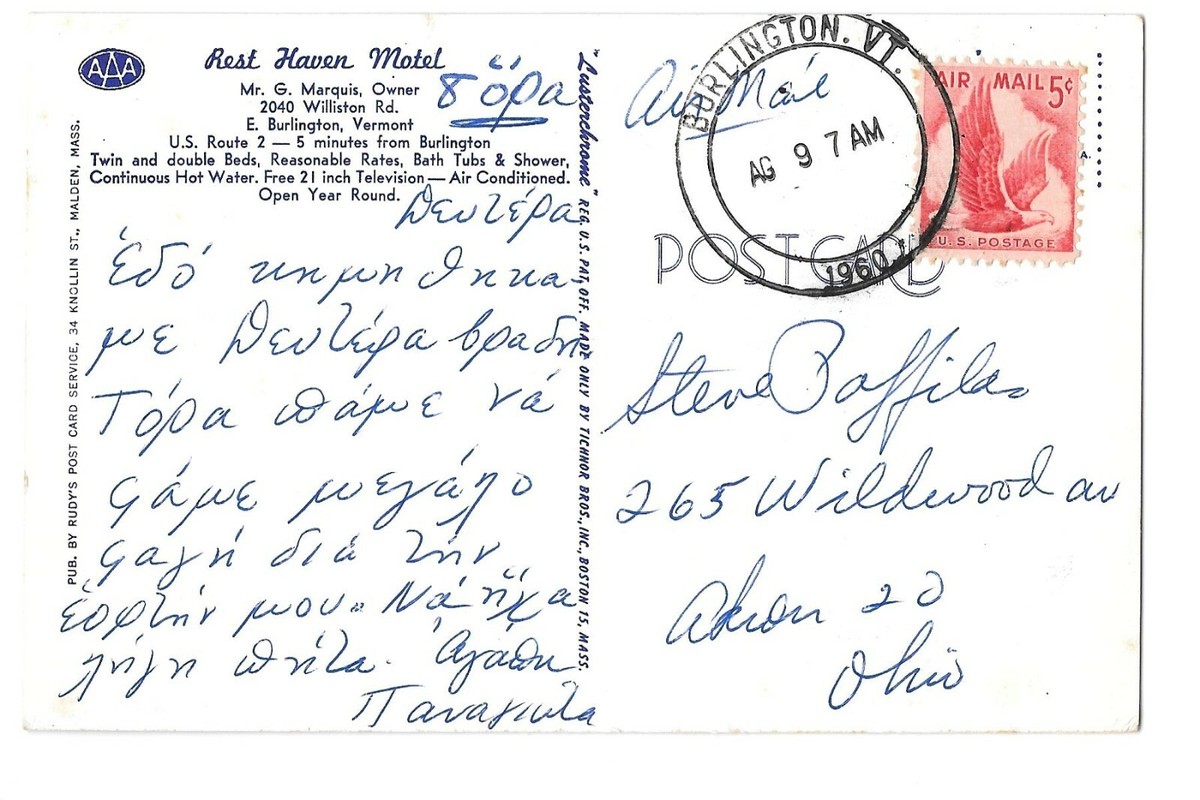 AAA
Rest Haven Motel
Mr. G. Marquis, Owner
2040 Williston Rd.
E. Burlington, Vermont
U.S. Route 2 — 5 minutes from Burlington
Twin and double Beds, Reasonable Rates, Bath Tubs & Shower,
Continuous Hot Water. Free 21 inch Television — Air Conditioned.
Open Year Round.
8 ὅρα
Δευτέρα
Ἐδό κημηθηκα-
με Δευτέρα βραδη
Τόρα πάμε νά
φάμε μεγάλο
φαγή διά τήν
ἑορτήν μου. Νά ἤχα
λήγη πήτα. Ἀγάπη
Παναγιωτα
PUB. BY RUDY'S POST CARD SERVICE, 34 KNOLLIN ST., MALDEN, MASS.
"Lusterchrome" REG. U.S. PAT. OFF. MADE ONLY BY TICHNOR BROS., INC., BOSTON 15, MASS.
Air Mail
BURLINGTON, VT.
AG 9 7 AM
1960
AIR MAIL 5¢
U.S. POSTAGE
A.
POST CARD
Steve Paffilas
265 Wildwood av
Akron 20
Ohio